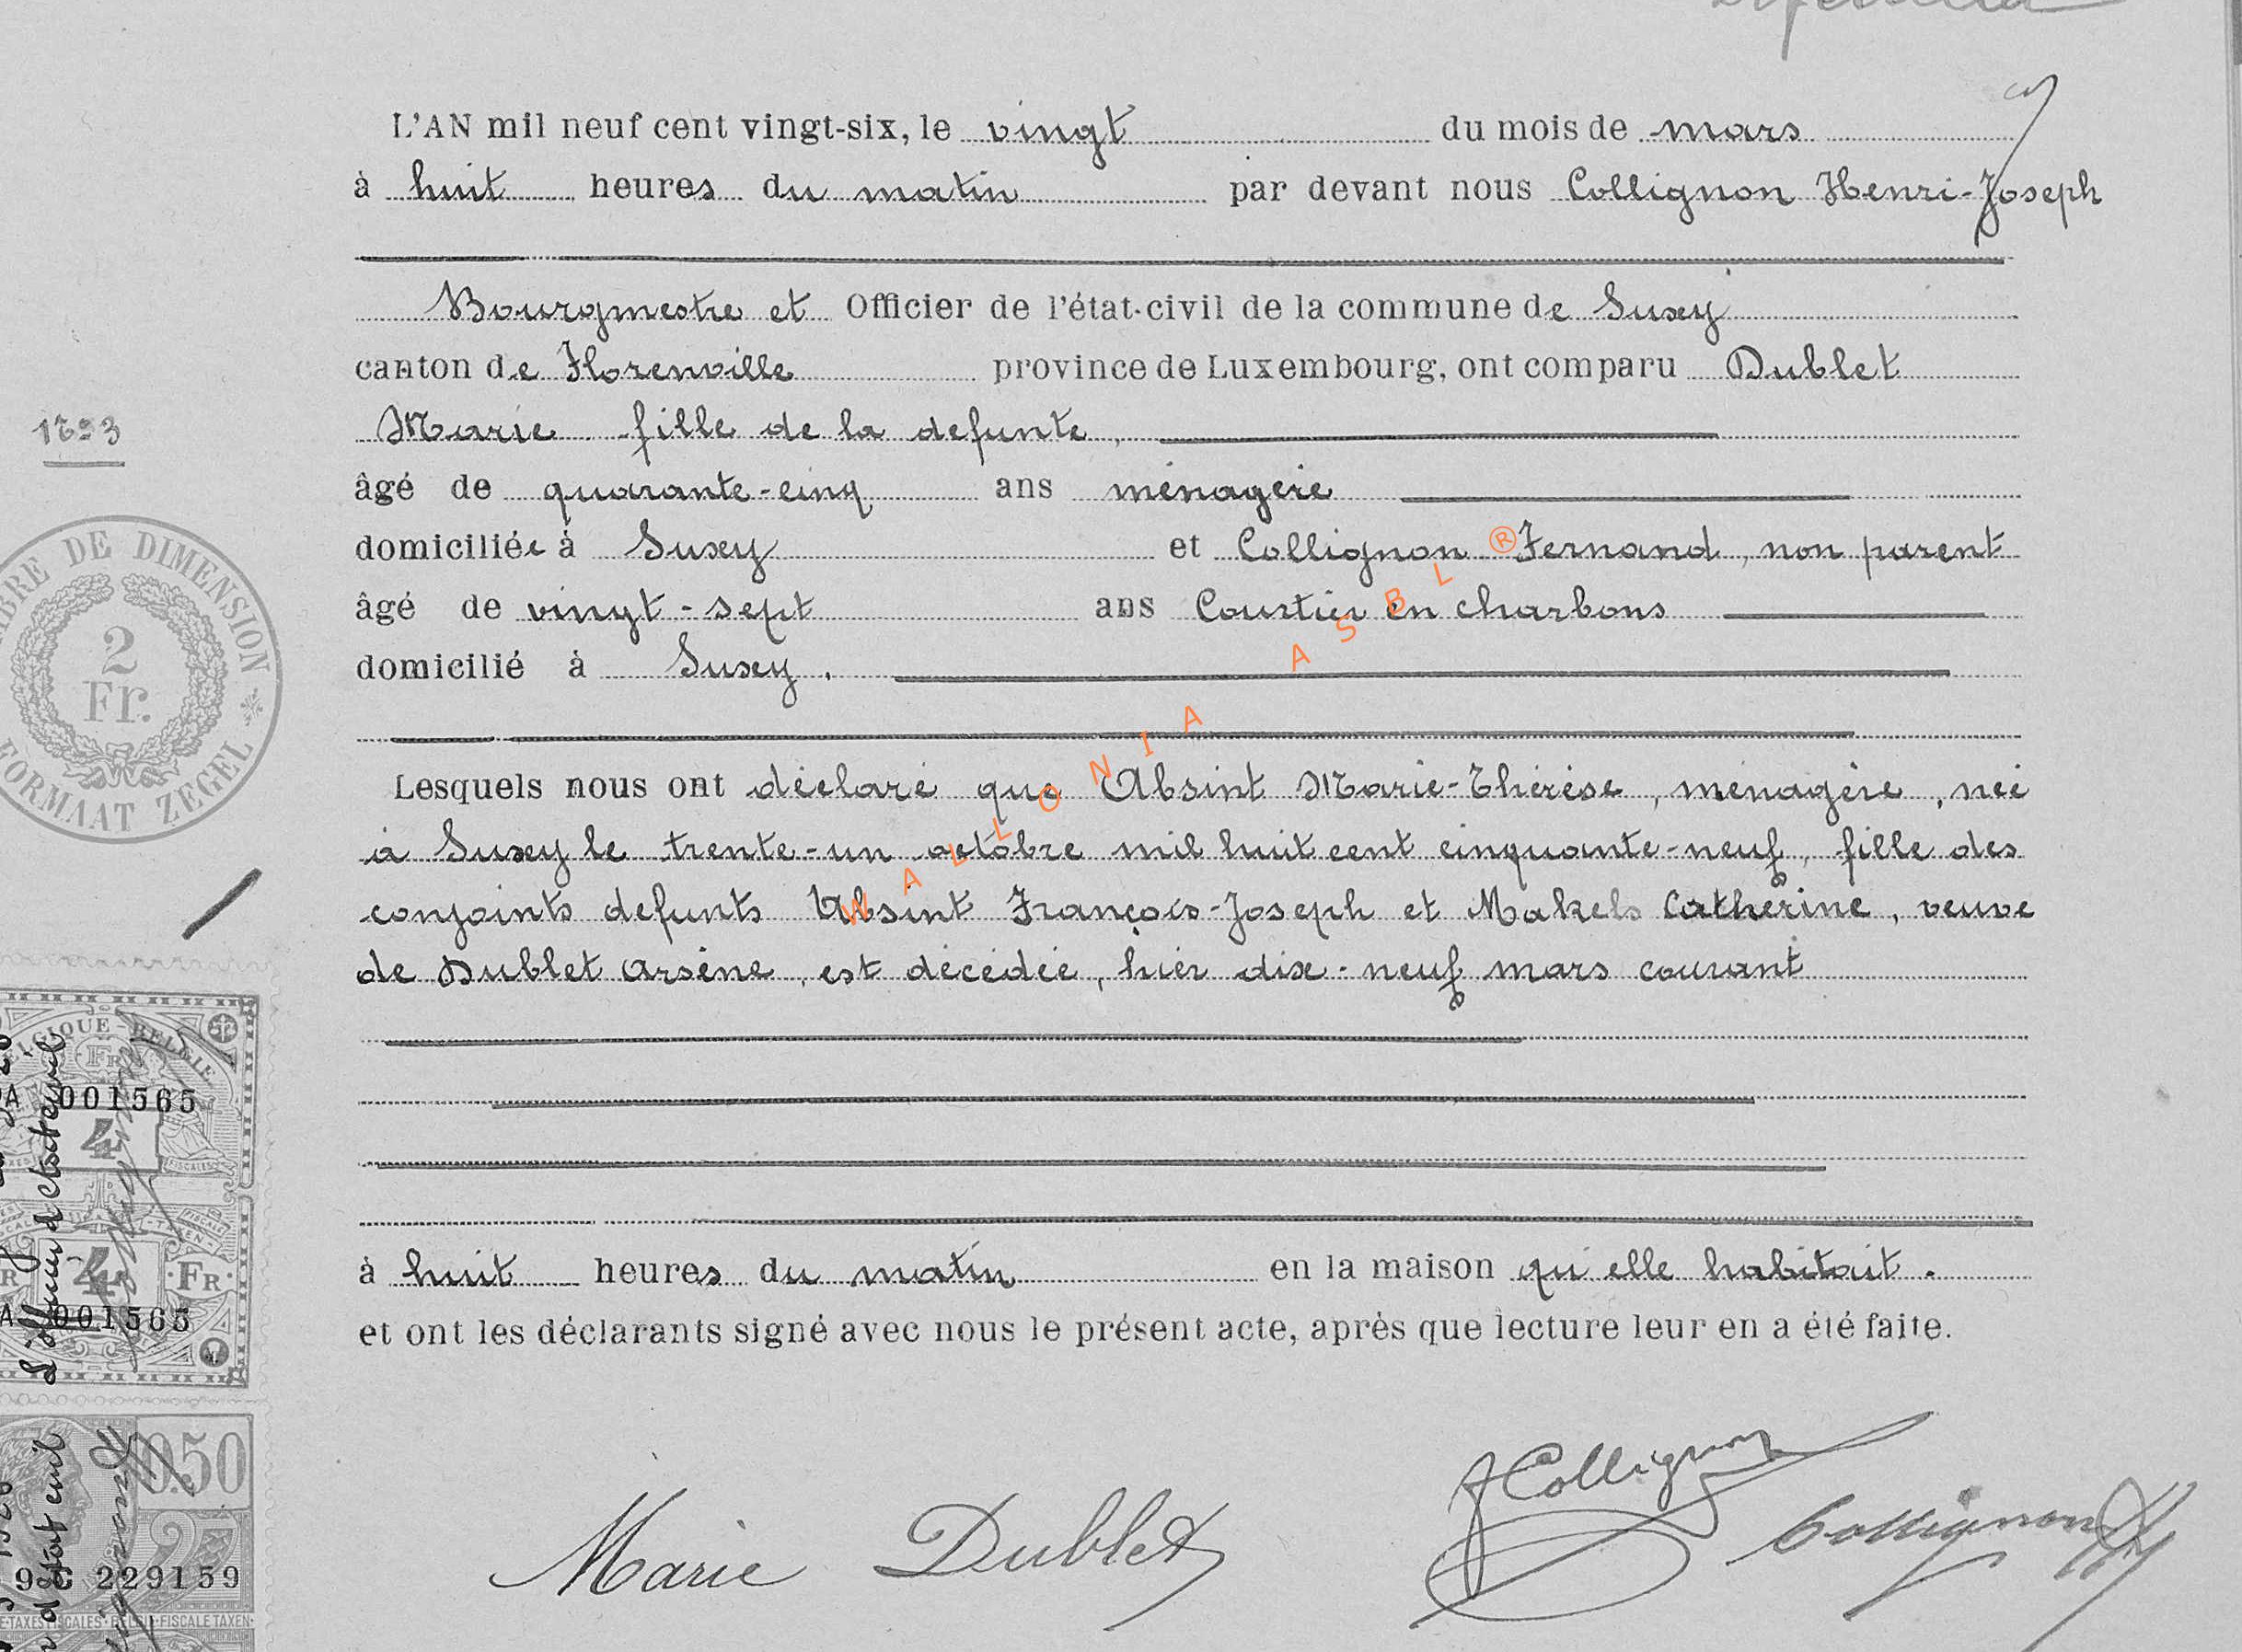 L'AN mil neuf cent vingt-six, le vingt du mois de mars
à huit heures du matin par devant nous Collignon Henri-Joseph
Bourgmestre et Officier de l'état-civil de la commune de Suxy
canton de Florenville province de Luxembourg, ont comparu Dublet
Marie fille de la defunte,
âgé de quarante-cinq ans ménagère
domiciliée à Suxy et Collignon Fernand, non parent
âgé de vingt-sept ans Courtier en charbons
domicilié à Suxy.
Lesquels nous ont déclaré que Absint Marie-Thérèse, ménagère, née
à Suxy le trente-un octobre mil huit cent cinquante-neuf, fille des
conjoints defunts Absint François-Joseph et Makels Catherine, veuve
de Dublet Arsène, est décédée, hier dix-neuf mars courant
à huit heures du matin en la maison qu'elle habitait.
et ont les déclarants signé avec nous le présent acte, après que lecture leur en a été faite.
Marie Dublet
F Collignon
Collignon HJ
WALLONIA ASBL ®
DE DIMENSION
2
Fr.
FORMAAT ZEGEL
BELGIQUE-BELGIE
FR
A 001565
4
4
FR
A 001565
L'officier d'état civil
0.50
229159
TAXES FISCALES-BELGIE-FISCALE TAXEN